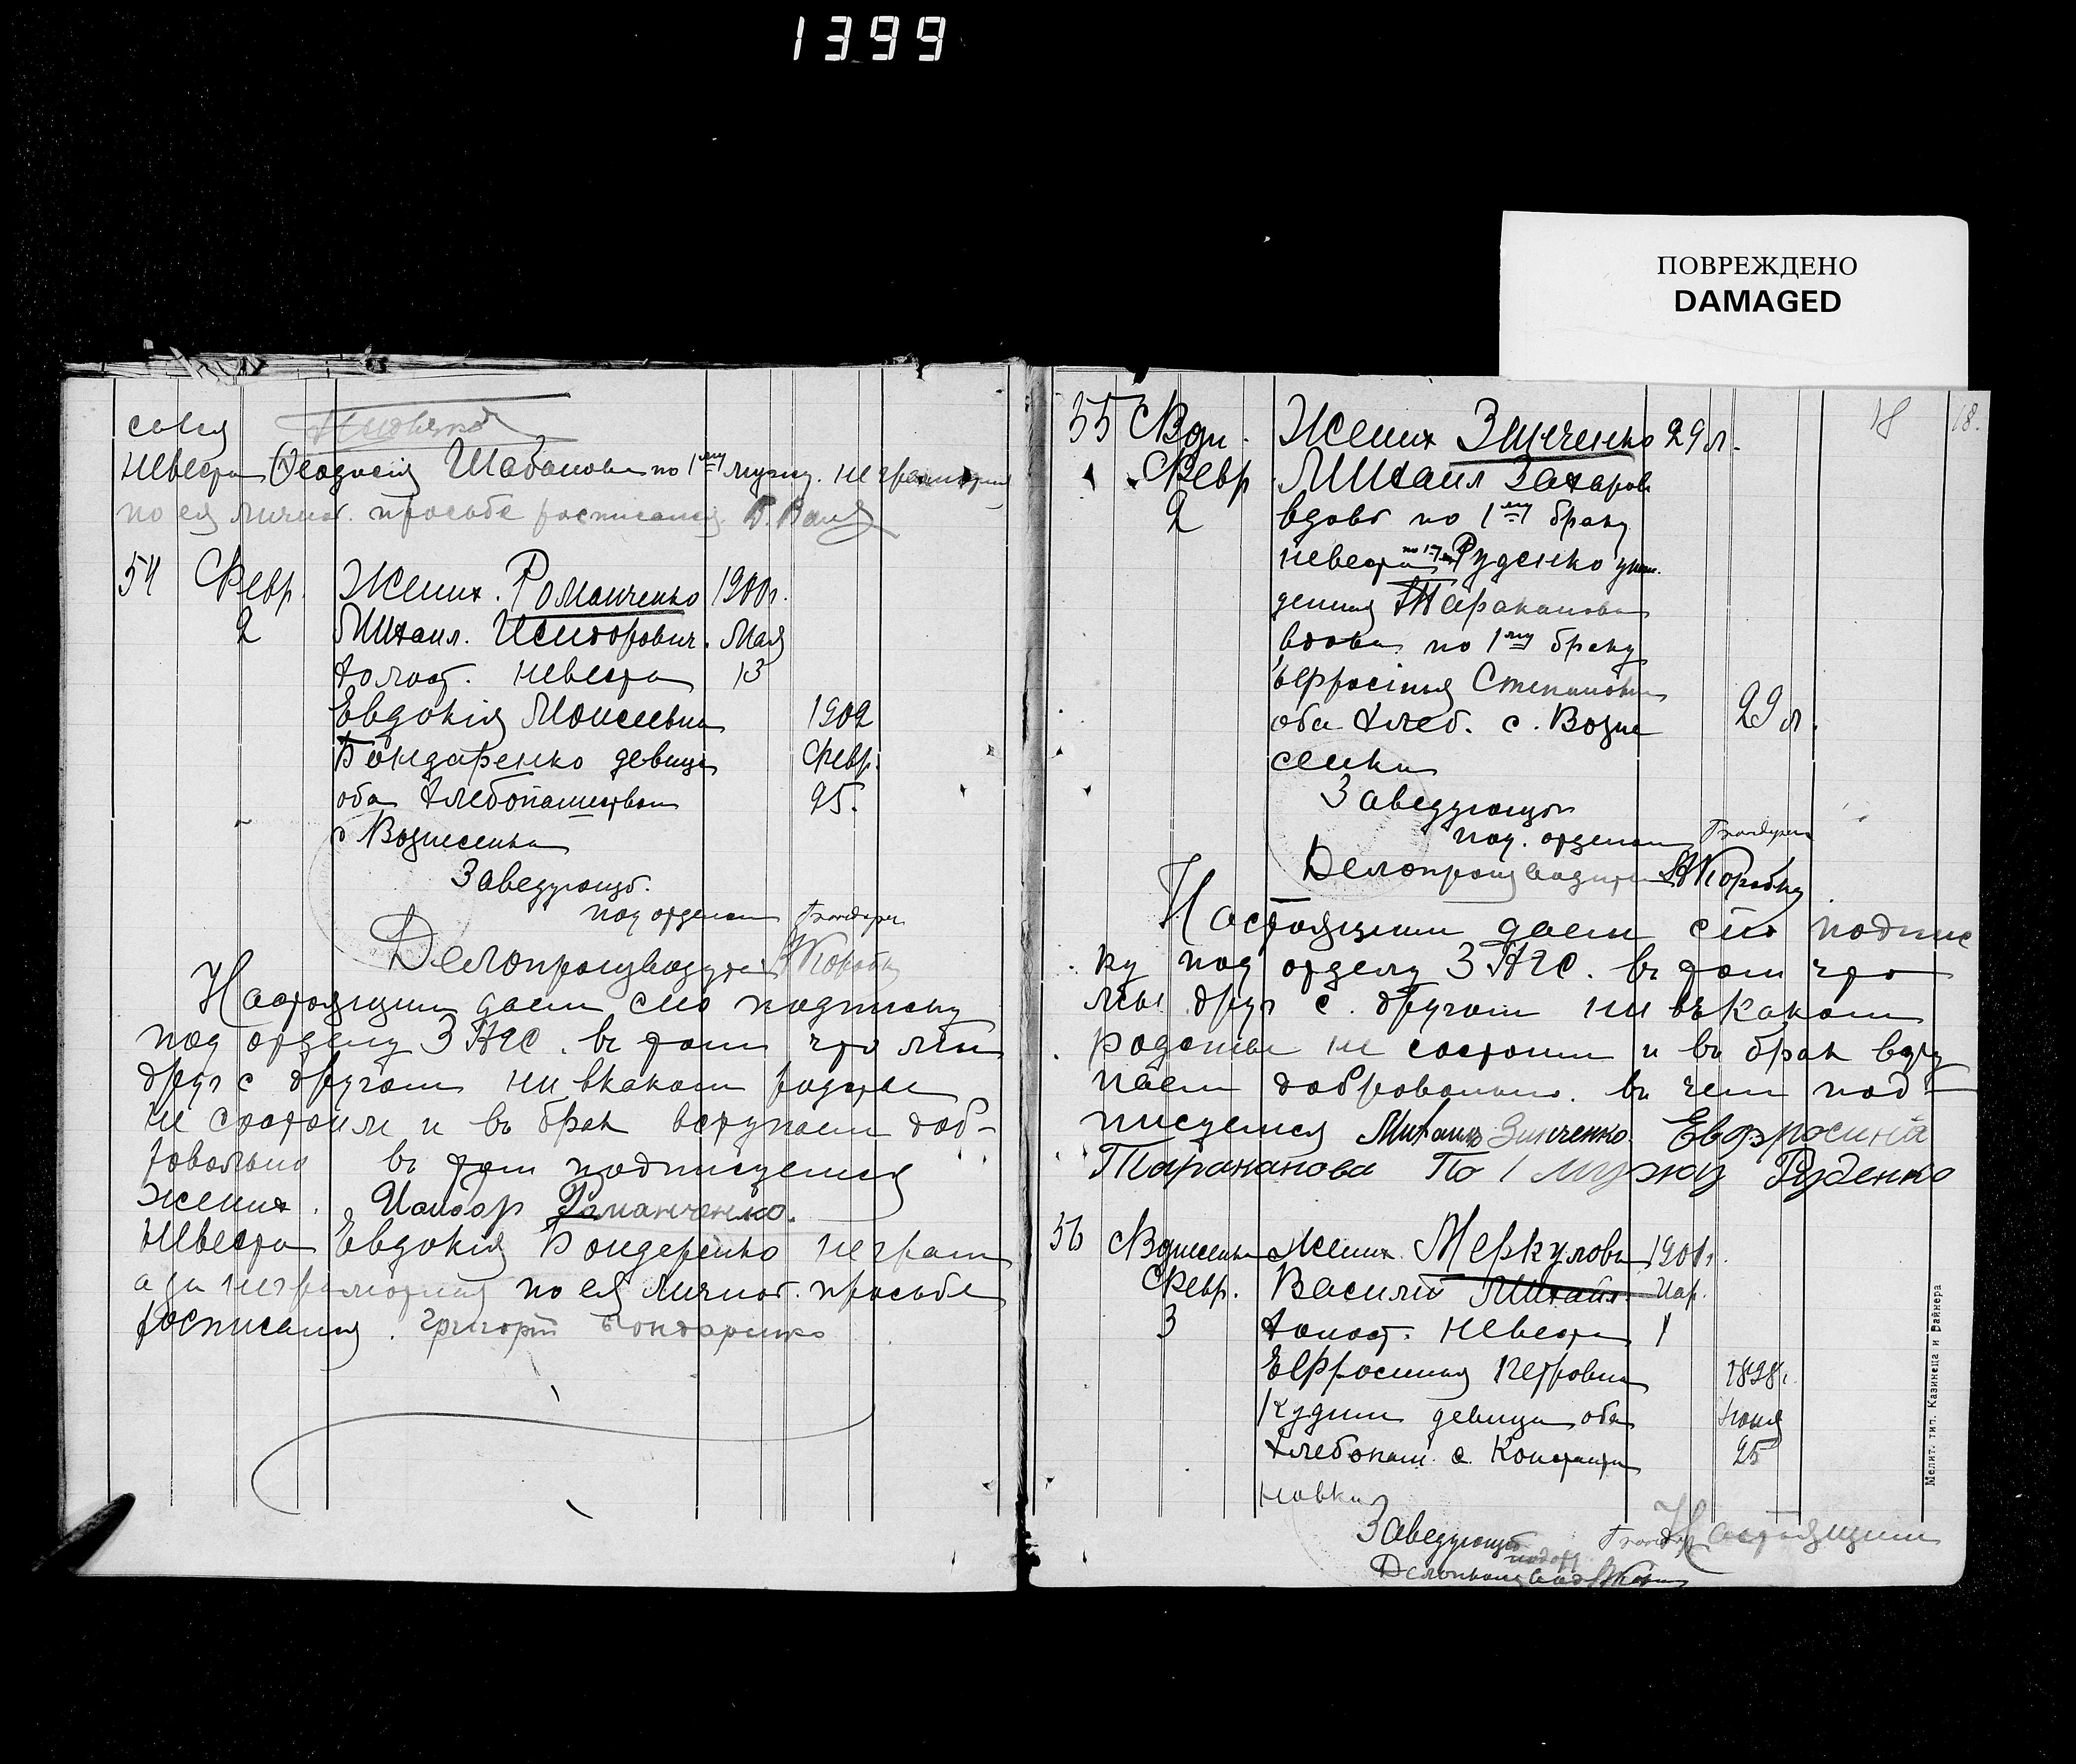 1399
ПОВРЕЖДЕНО
DAMAGED
невеста Феодосія Шабанова по 1му мужу. неграмотная
по ея личной. просьбе росписался
54 Февр. Жених. Романченко 1900г.
2 Михаил. Исидорович. Мая
холост. невеста 13
Евдокія Моисеевна 1902
Бондаренко девица Февр.
оба хлебопашества 25.
с Вознесенка
Заведующ.
под отделом
Делопроизводитель Коробка
Настоящим даем сию подписку
под отделу ЗАГС. въ том что мы
друг с другом ни вкаком родстве
не состоим и въ брак вступаем доб-
ровольно въ том подписуемся
жених. Исидор Романченко.
Невеста Евдокія Бондаренко неграм
а за неграмотная по ея личной. просьбе
росписался. Григорій Бондаренко
18 18.
55 Жених Зинченко 29 л.
Февр Михаил Захаров
2 вдовъ по 1му браку
невеста по 1му Руденко урож.
денная Тараканова
вдова по 1му браку
Ефросінья Степановна
оба хлеб. с. Возне 29 л.
сенки
Заведующ
под. отделом
Делопроизводитель Коробка
Настоящим даем сию подпис
ку под отделу ЗАГС. въ том что
мы друг с. другом ни въ каком
родстве не состоим и въ брак всту
паем добровольно. въ чем под-
писуемся Михаилъ Зинченко. Евфросинія
Тараканова По 1 мужу Руденко
56 Вознесенка Жених. Меркулов 1901г.
Февр. Василій Михайл. Мар.
3 холост. невеста 1
Ефросиния Петровна 1898г.
Кудин девица оба Июня
хлебопаш. с. Константи 25
новка
Заведующій подотд Настоящим
Делопроизвод
Мелит. тип. Казинеца и Вайнера